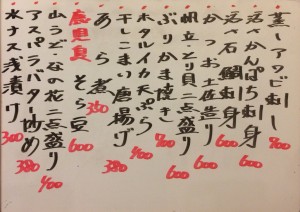 蒸しアワビ刺し 900
活〆かんぱち刺身 600
活〆石鯛刺身 600
かつお土佐造り 600
帆立とり貝二点盛り 600
ぶりかま焼き 700
ホタルイカ天ぷら 400
干しこまい唐揚げ 400
あら煮 350
鹿児島 そら豆 600
山うどなの花二点盛り 400
アスパラバター炒め 380
水ナス浅漬け 300